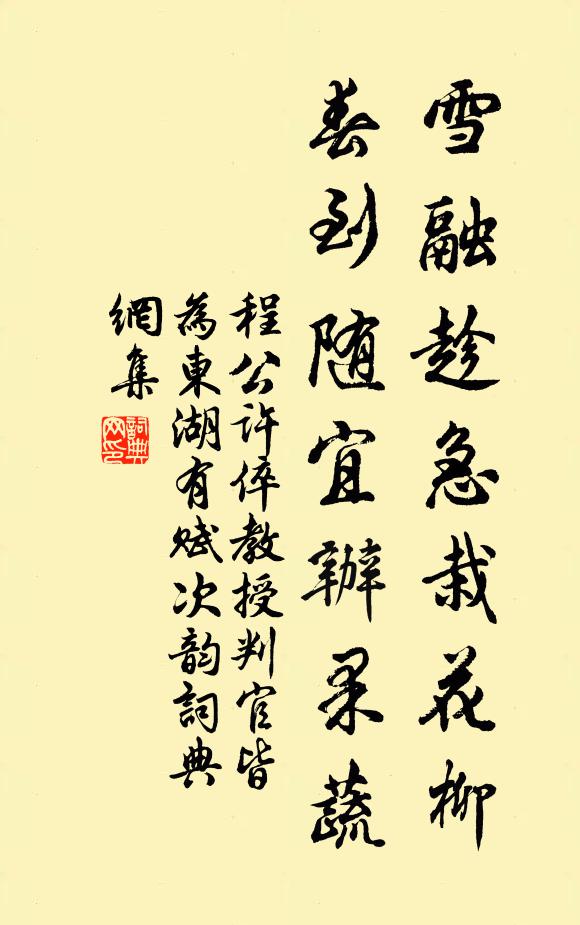 雪融趁急栽花柳
春到随宜辦果蔬
程公许倅教授判官皆
為東湖有赋次韵詞典
網集
詞典网印